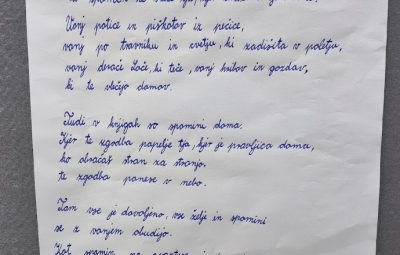 Vonj potice in piškotov iz pečice,
vonj po travniku in cvetju, ki zadišita v poletju,
vonj deroče Soče, ki teče, vonj hribov in gozdov,
ki te vlečejo domov.
Tudi v knjigah so spomini doma.
Kjer te zgodba popelje tja, kjer je pravljica doma,
ko obračaš stran za stranjo,
te zgodba ponese v nebo.
Tam vse je dovoljeno, vse želje in spomini
se z vonjem obudijo.
Kot spomin na